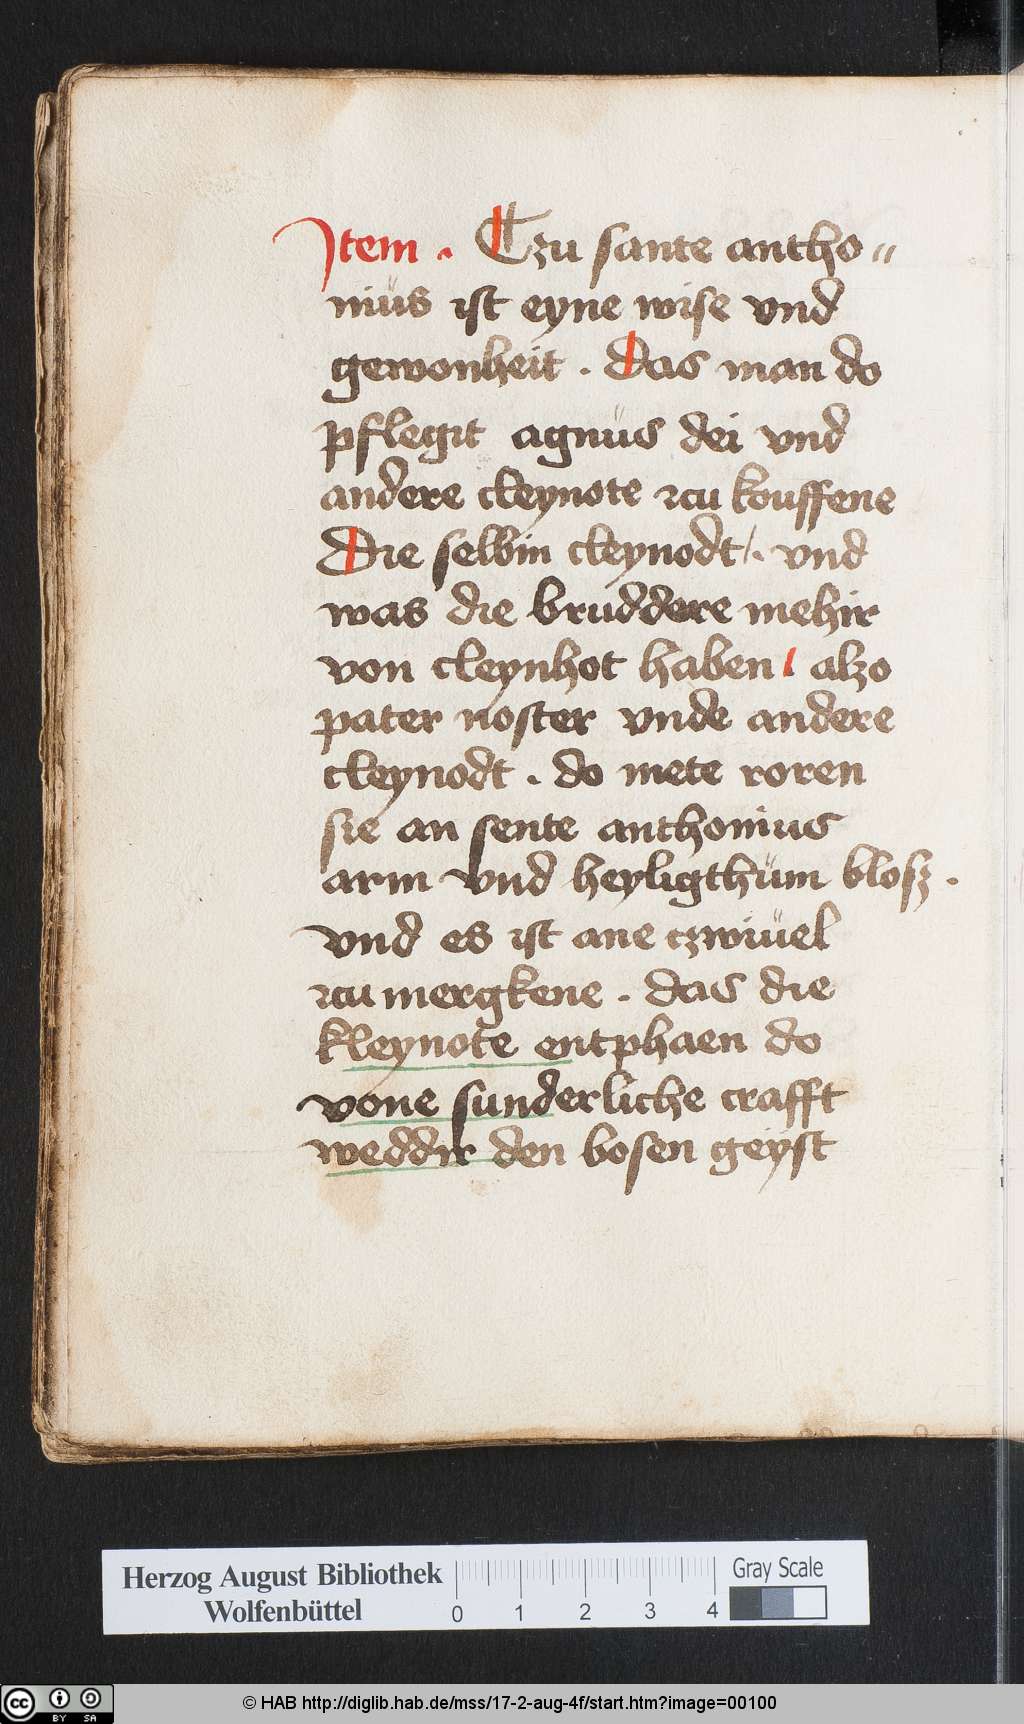 Item . Czu sante antho=
nius ist eyne wise vnd
gewonheit . Das man do
pflegit agnus dei vnd
andere cleynote zcu kouffene
Die selbin cleynodt / . vnd
was die bruddere mehir
von cleynhot haben / alzo
pater noster vnde andere
cleynodt . do mete roren
sie an sente anthonius
arm vnd heyligthum blosz .
vnd es ist ane czwiuel
zcu mergkene . das die
kleynote entphaen do
vone sunderliche crafft
weddir den bosen geyst
Herzog August Bibliothek
Wolfenbüttel
0 1 2 3 4
Gray Scale
cc BY SA
© HAB http://diglib.hab.de/mss/17-2-aug-4f/start.htm?image=00100